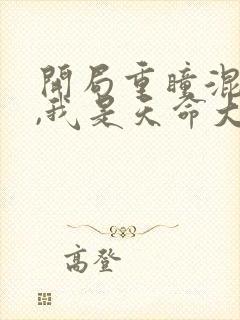 開局重瞳混
,我是天命大
高登